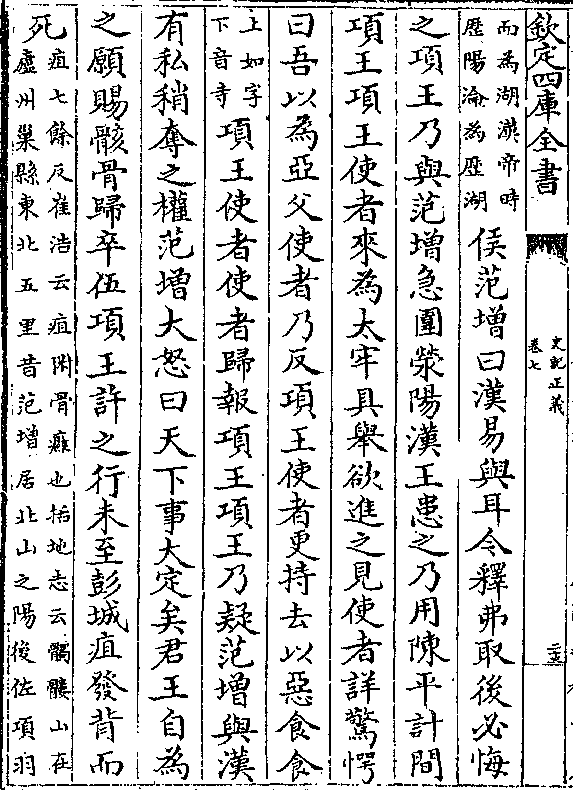 欽定四庫全書
史記正義
卷七
而為湖漢帝時
歷陽淪為歷湖
侯范增曰漢易與耳今釋弗取後必悔
之項王乃與范增急圍滎陽漢王患之乃用陳平計間
項王項王使者來為太牢具舉欲進之見使者詳驚愕
曰吾以為亞父使者乃反項王使者更持去以惡食食
上如字
下音寺
項王使者使者歸報項王項王乃疑范增與漢
有私稍奪之權范增大怒曰天下事大定矣君王自為
之願賜骸骨歸卒伍項王許之行未至彭城疽發背而
死
疽七餘反崔浩云疽附骨癰也括地志云髑髏山在
廬州巢縣東北五里昔范增居北山之陽後佐項羽